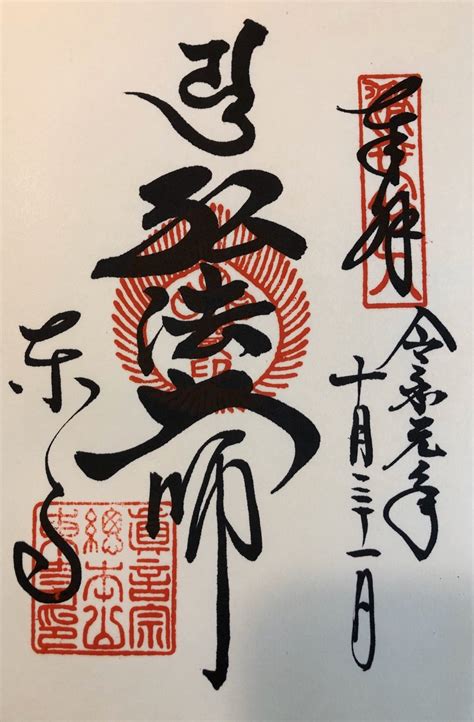 奉拝
令和元年
十月三十一日
弘法大師
東寺
眞言宗
總本山
東寺印